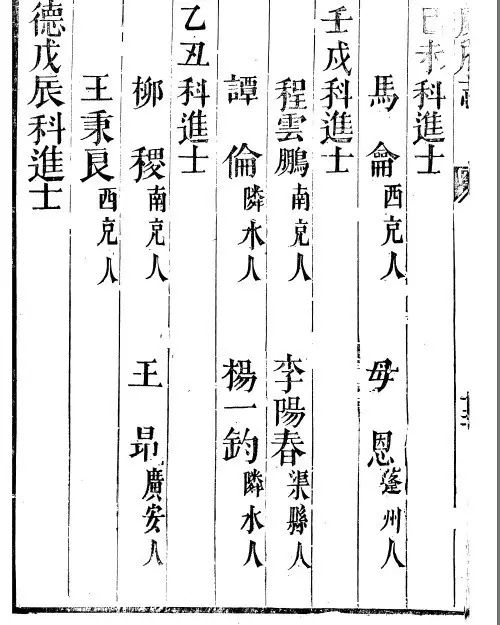 己未科進士
馬龠西充人 毋恩蓬州人
壬戍科進士
程雲鵬南充人 李陽春渠縣人
譚倫隣水人 楊一鈞隣水人
乙丑科進士
柳稷南充人 王昻廣安人
王秉良西充人
德戊辰科進士